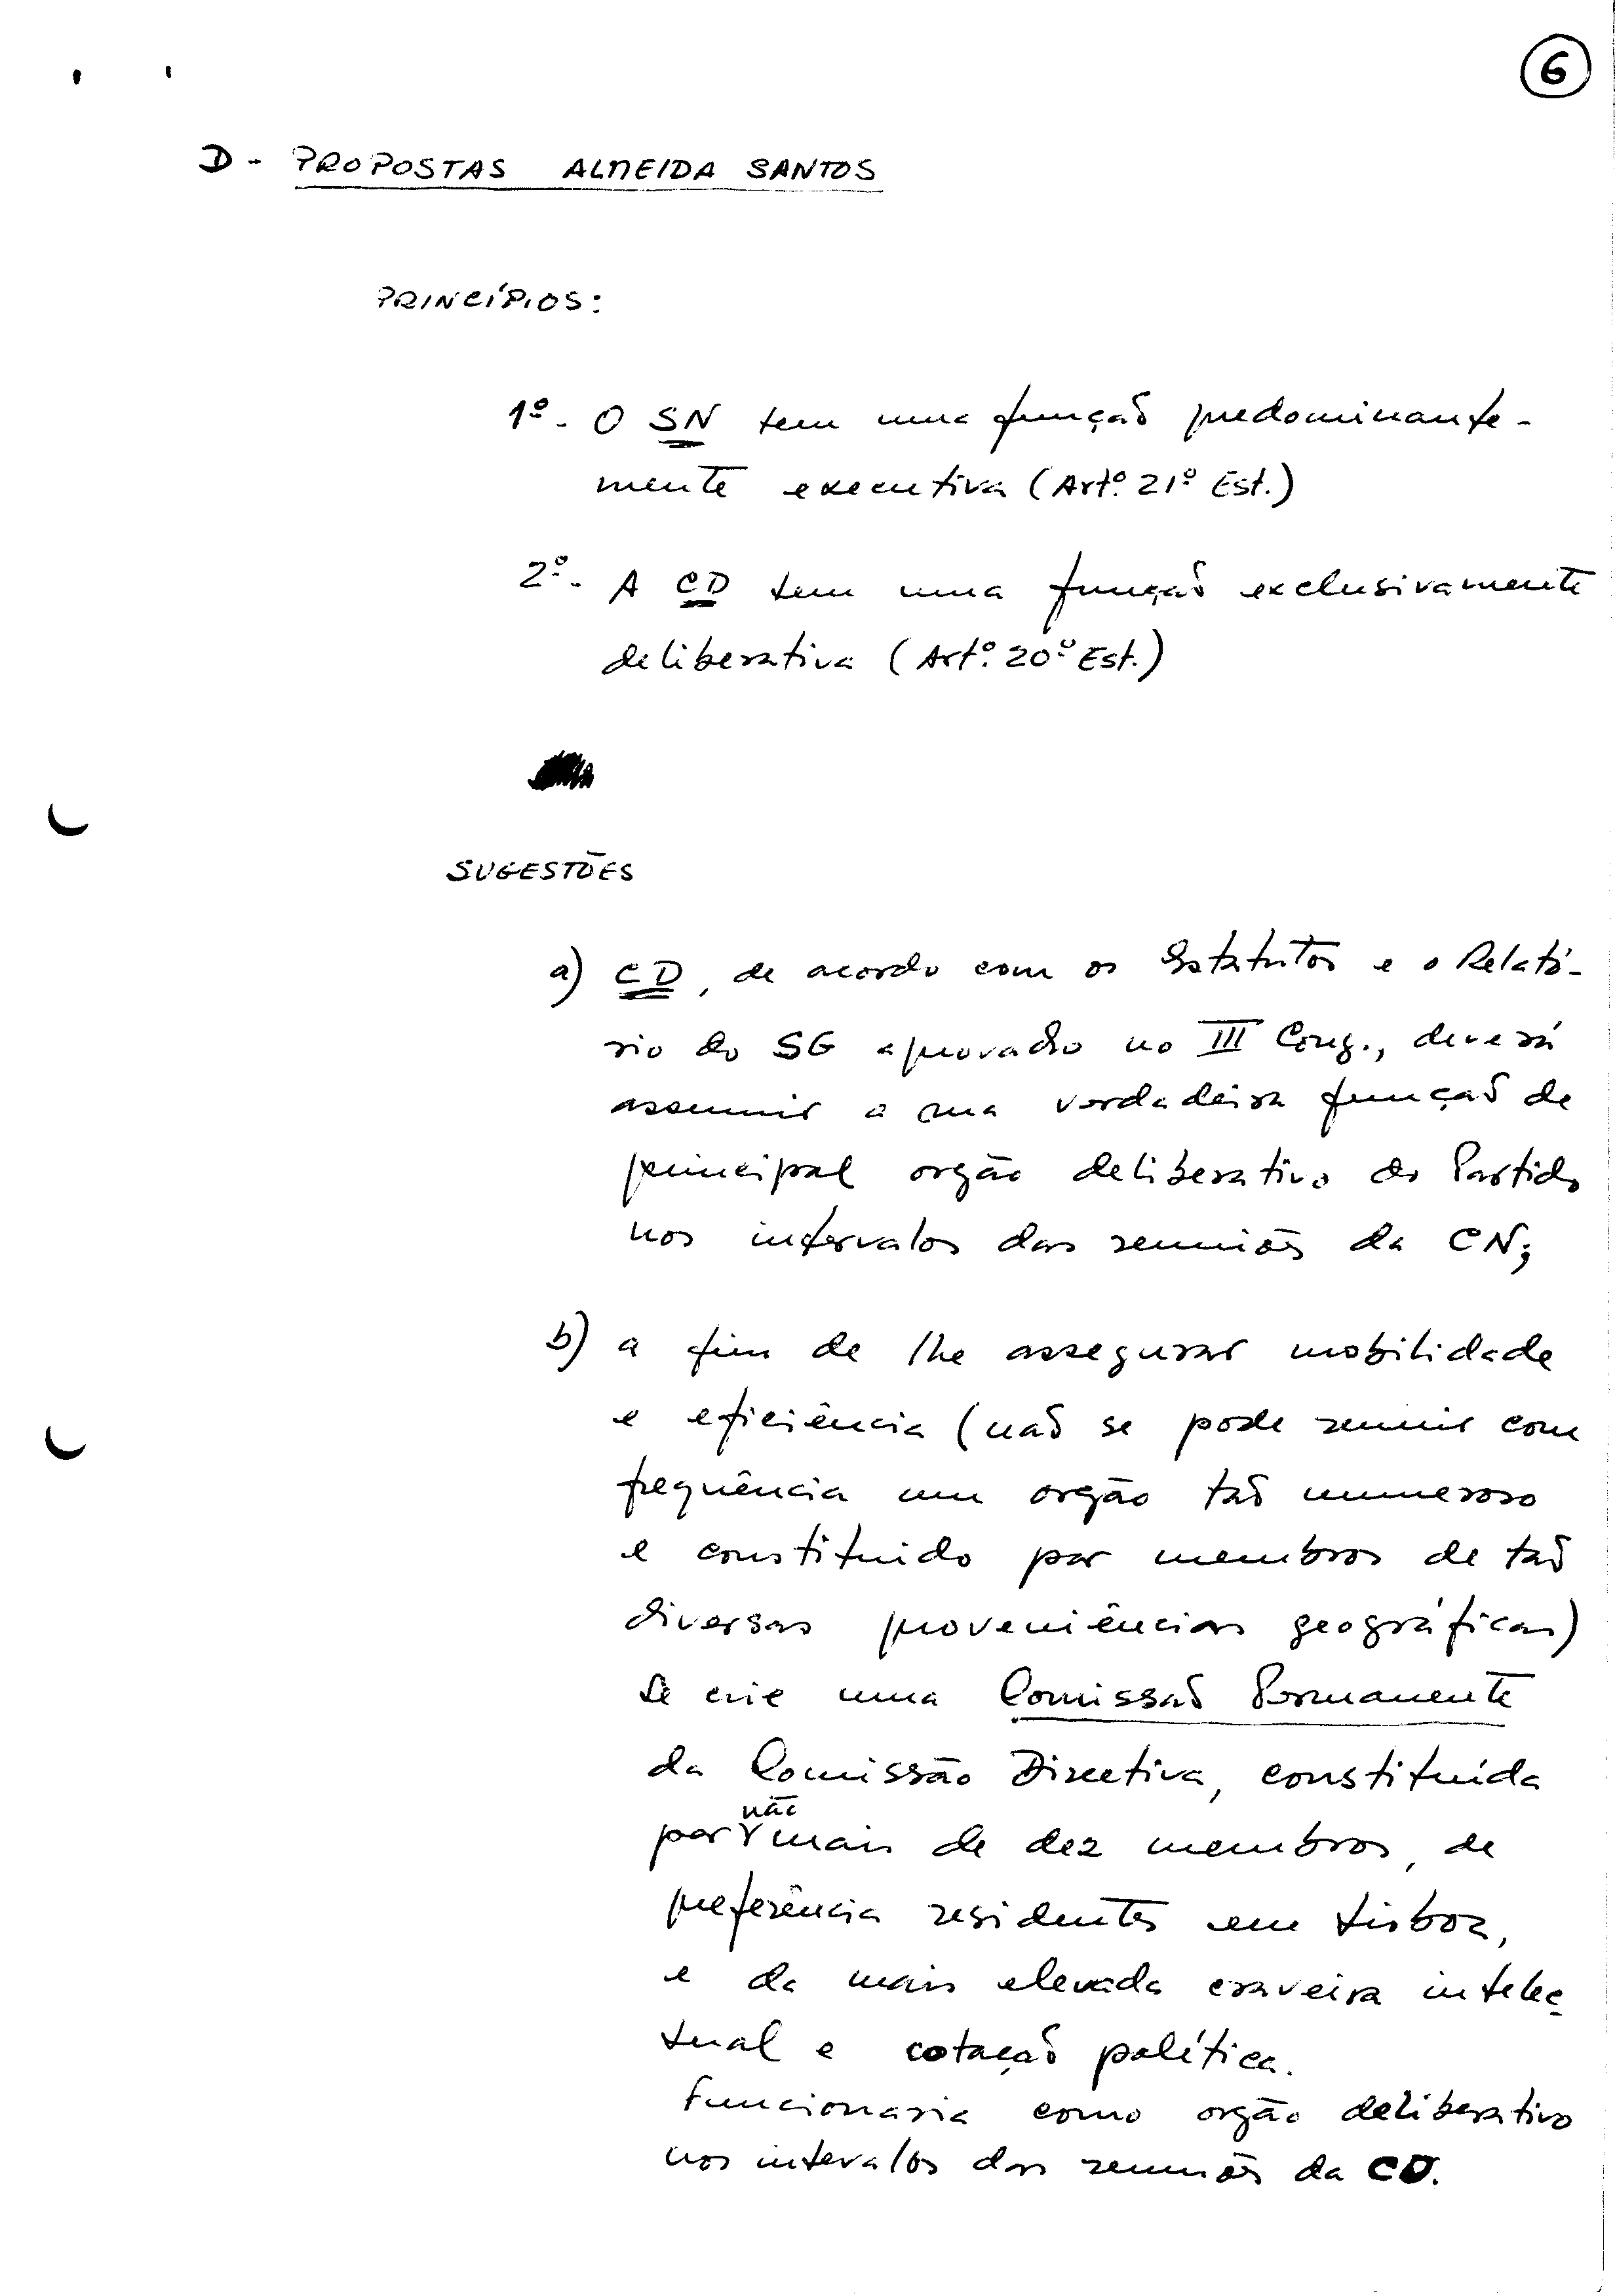 6
D - PROPOSTAS ALMEIDA SANTOS
PRINCÍPIOS:
1º - O SN tem uma função predominante-
mente executiva (Artº. 21º Est.)
2º - A CD tem uma função exclusivamente
deliberativa (Artº. 20º Est.)
SUGESTÕES
a) CD, de acordo com os Estatutos e o Relató-
rio do SG aprovado no III Cong., deverá
assumir a sua verdadeira função de
principal orgão deliberativo do Partido
nos intervalos das reuniões da CN;
b) a fim de lhe assegurar mobilidade
e eficiência (não se pode reunir com
frequência um orgão tão numeroso
e constituido por membros de tão
diversas proveniências geográficas)
se crie uma Comissão Permanente
da Comissão Directiva, constituída
por não mais de dez membros, de
preferência residentes em Lisboa,
e da mais elevada craveira intelec
tual e cotação política.
Funcionaria como orgão deliberativo
nos intervalos das reuniões da CD.